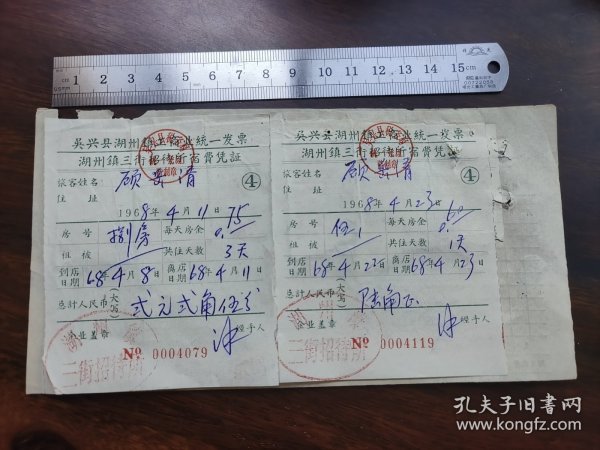 1 2 3 4 5 6 7 8 9 10 11 12 13 14 15cm
吳兴县湖州镇工商业統一发票
湖州鎮三街招待所宿費凭証
旅客姓名 顾 清
④
住址
1968年4月11
房号 捌房
每天房金 0.75
租被
共住天数 3天
到店日期 68年4月8日
离店日期 68年4月11日
总計人民币(大写) 弍元弍角伍分
企业盖章
經手人
三街招待所
№ 0004079
吳兴县湖州镇工商业統一发票
湖州鎮三街招待所宿費凭証
旅客姓名 顾 清
④
住址
1968年4月23
房号 伍
每天房金 0.60
租被
共住天数 1天
到店日期 68年4月22日
离店日期 68年4月23日
总計人民币(大写) 陆角正
企业盖章
經手人
三街招待所
№ 0004119
孔夫子旧书网
www.kongfz.com